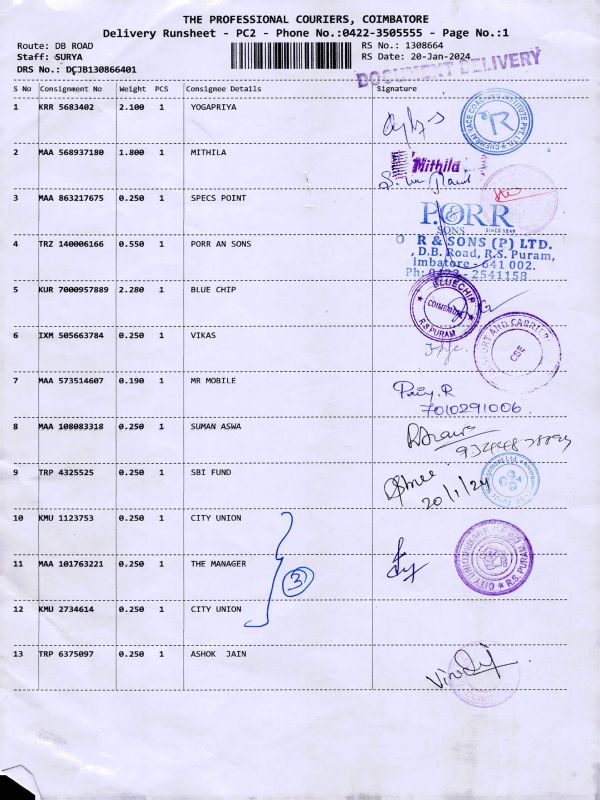 THE PROFESSIONAL COURIERS, COIMBATORE
Delivery Runsheet - PC2 - Phone No.:0422-3505555 - Page No.:1
Route: DB ROAD
RS No.: 1308664
Staff: SURYA
RS Date: 20-Jan-2024
DRS No.: DCJB130866401
DOCUMENT DELIVERY
S No Consignment No Weight PCS Consignee Details Signature
1 KRR 5683402 2.100 1 YOGAPRIYA
2 MAA 568937180 1.800 1 MITHILA
Mithila
3 MAA 863217675 0.250 1 SPECS POINT
P.ORR
SONS
4 TRZ 140006166 0.550 1 PORR AN SONS
O R & SONS (P) LTD.
, D.B. Road, R.S. Puram,
imbatore - 641 002.
Ph: 0422 - 2541158
5 KUR 7000957889 2.280 1 BLUE CHIP
BLUECHIP
COIMBATORE
R.S PURAM
6 IXM 505663784 0.250 1 VIKAS
PORT AND CARRIER
CBE
7 MAA 573514607 0.190 1 MR MOBILE
Priy. R
7010291006
8 MAA 108083318 0.250 1 SUMAN ASWA
9 TRP 4325525 0.250 1 SBI FUND
20/1/24
10 KMU 1123753 0.250 1 CITY UNION
11 MAA 101763221 0.250 1 THE MANAGER
3
CITY UNION BANK
R.S. PURAM
12 KMU 2734614 0.250 1 CITY UNION
13 TRP 6375097 0.250 1 ASHOK JAIN